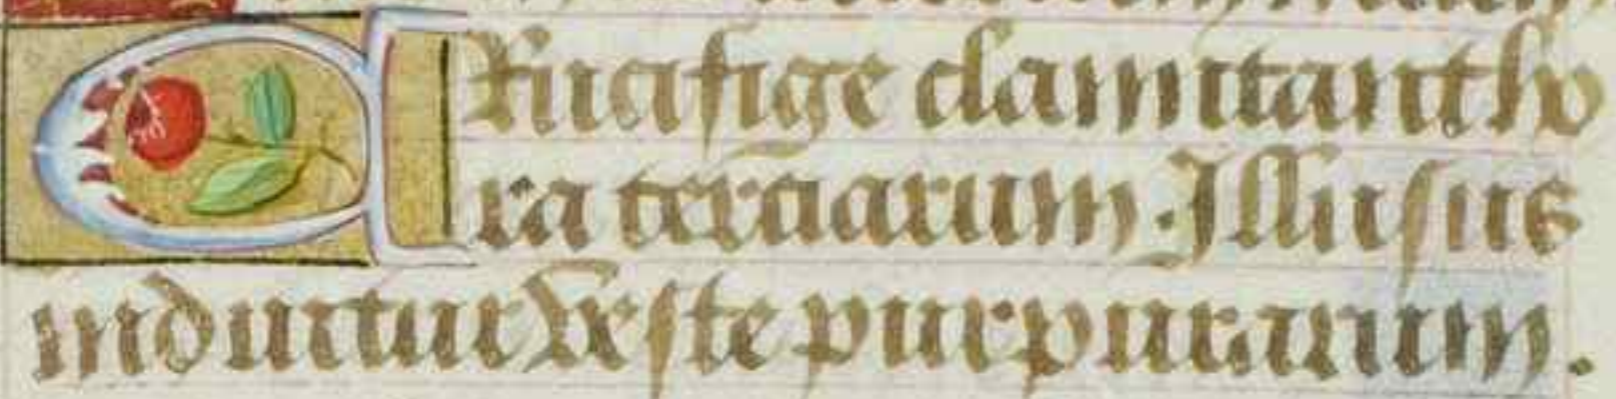 CRucifige clamitant ho
ra terciarum. Illusus
induitur veste purpurarum.